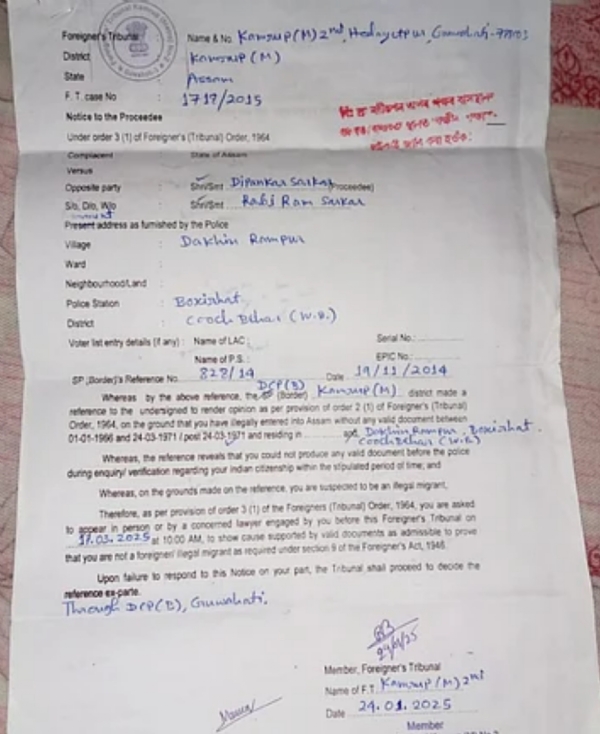 Foreigner's Tribunal : Name & No. Kamrup (M) 2nd, Hedayetpur, Guwahati-
District : Kamrup (M)
State : Assam
F. T. case No : 1717/2015
Notice to the Proceedee
Under order 3 (1) of Foreigner's (Tribunal) Order, 1964
Complacent : State of Assam
Versus
Opposite party : Shri/Smt Dipankar Sarkar (Proceedee)
S/o, D/o, W/o : Shri/Smt Rabi Ram Sarkar
Present address as furnished by the Police
Village : Dakhin Rampur
Ward :
Neighbourhood/Land :
Police Station : Boxirhat
District : Cooch Behar (W.B.)
Voter list entry details (if any) : Name of LAC : Serial No.:
Name of P.S. : EPIC No.:
SP (Border)'s Reference No. 828/14 Date 19/11/2014
Whereas by the above reference, the SP (Border) DCP(B) Kamrup (M) district made a
reference to the undersigned to render opinion as per provision of order 2 (1) of Foreigner's (Tribunal)
Order, 1964, on the ground that you have illegally entered into Assam without any valid document between
01-01-1966 and 24-03-1971 / post 24-03-1971 and residing in Dakhin Rampur, Boxirhat.
Cooch Behar (W.B)
Whereas, the reference reveals that you could not produce any valid document before the police
during enquiry/ verification regarding your indian citizenship within the stipulated period of time; and
Whereas, on the grounds made on the reference, you are suspected to be an illegal migrant,
Therefore, as per provision of order 3 of the Foreigners (Tribunal) Order, 1964, you are asked
to appear in person or by a concerned lawyer engaged by you before this Foreigner's Tribunal on
17.03.2025 at 10:00 AM, to show cause supported by valid documents as admissible to prove
that you are not a foreigner/ illegal migrant as required under section 9 of the Foreigner's Act, 1946.
Upon failure to respond to this Notice on your part, the Tribunal shall proceed to decide the
reference ex-parte.
Through DCP(B), Guwahati.
Member, Foreigner's Tribunal
Name of F.T. Kamrup (M) 2nd
Date 24.01.2025
Member